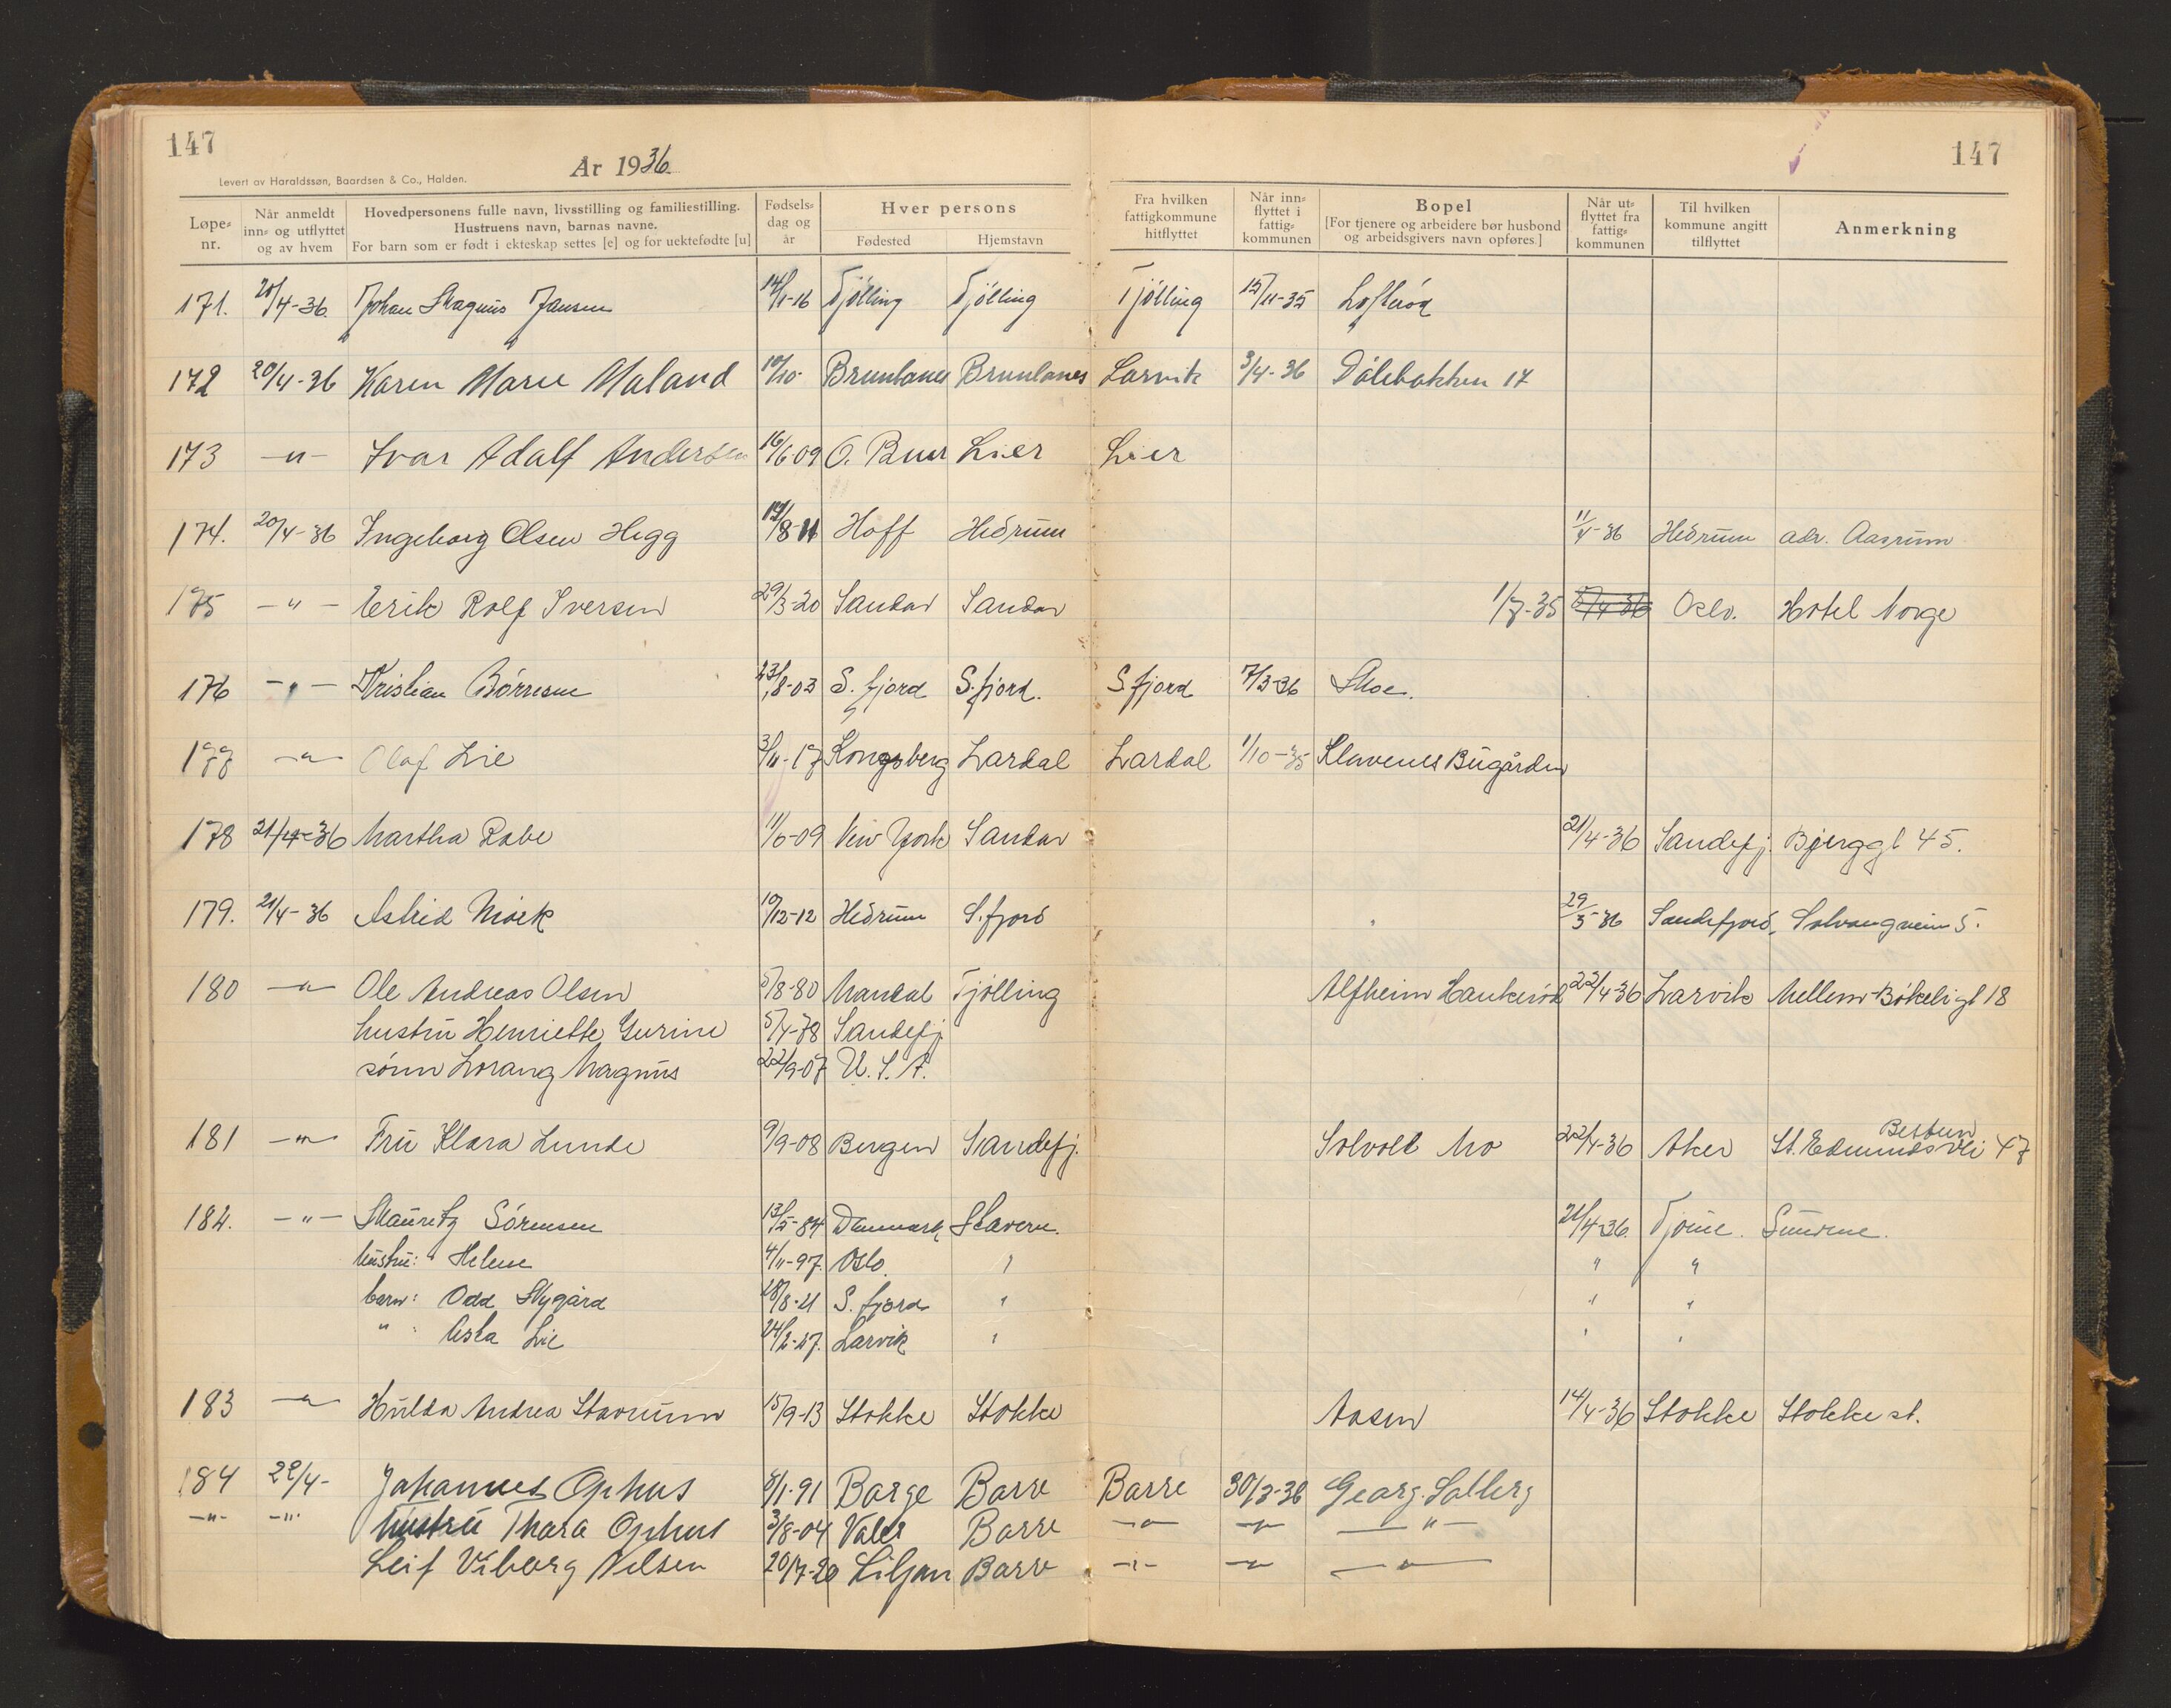 147
147
År 1936
Levert av Haraldssøn, Baardsen & Co., Halden.
Løpe-nr. Når anmeldt inn- og utflyttet og av hvem Hovedpersonens fulle navn, livsstilling og familiestilling. Hustruens navn, barnas navne. For barn som er født i ekteskap settes [e] og for uektefødte [u] Fødsels-dag og år Hver persons Fødested Hjemstavn Fra hvilken fattigkommune hitflyttet Når inn-flyttet i fattig-kommunen Bopel [For tjenere og arbeidere bør husbond og arbeidsgivers navn opføres.] Når ut-flyttet fra fattig-kommunen Til hvilken kommune angitt tilflyttet Anmerkning
171. 20/4-36. Johan Magnus Jansen 14/1-16 Tjölling Tjölling Tjölling 15/11-35 Lofteröd
172 20/4-36 Karen Marie Maland 10/10- Brunlanes Brunlanes Larvik 3/4-36 Dölebakken 17
173 -"- Ivar Adalf Andersen 16/6-09 Ö. Buer Lier Lier
174. 20/4-36 Ingeborg Olsen Hegg 19/8-11 Hoff Hedrum 11/4-36 Hedrum adr. Aasrum
175 -"- Erik Rolf Iversen 29/3-20 Sandar Sandar 1/7-35 Oslo. Hotel Norge
176 -"- Kristian Börresen 23/8-03 S. fjord S. fjord. S. fjord 7/3-36 Moe.
177 -"- Olaf Lie 3/11-17 Kongsberg Lardal Lardal 1/10-35 Klavenes Bugården
178 21/4-36 Martha Rabe 11/6-09 New York Sandar 21/4-36 Sandefj. Bjerggt 45.
179. 21/4-36 Astrid Mörk 19/12-12 Hedrum S. fjord 29/3-36 Sandefjord, Solvangveien 5.
180 -"- Ole Andreas Olsen 5/8-80 Mandal Tjölling Alfheim Haukeröd 22/4-36 Larvik Mellem-Bökeligt 18
hustru Henriette Gurine 5/4-78 Sandefj
sönn Lorang Magnus 22/9-07 U.S.A.
181 -"- Fru Klara Lunde 9/9-08 Bergen Sandefj. Solvoll Mo 22/4-36 Aker St. Edmunds Vei 47 Bestun
182. -"- Mauritz Sörensen 13/5-84 Danmark Stavern. 21/4-36. Tjöme.
hustru: Helene 4/11-97. Oslo. " " "
barn: Odd Nygård 18/8-21 S. fjord " " "
" : Asta Lie 24/2-27. Larvik " " "
183 -"- Hulda Andrea Stavrum 15/9-13 Stokke Stokke Aasen 14/4-36 Stokke Stokke st.
184 22/4- Johannes Ophus 8/1-91 Borge Borre Borre 30/3-36 Georg. Solberg
-"- -"- hustru Thora Ophus 3/8-04 Våler Borre -"- -"- -"-
Leif Viborg Nilsen 20/7-20 Borre -"- -"- -"-